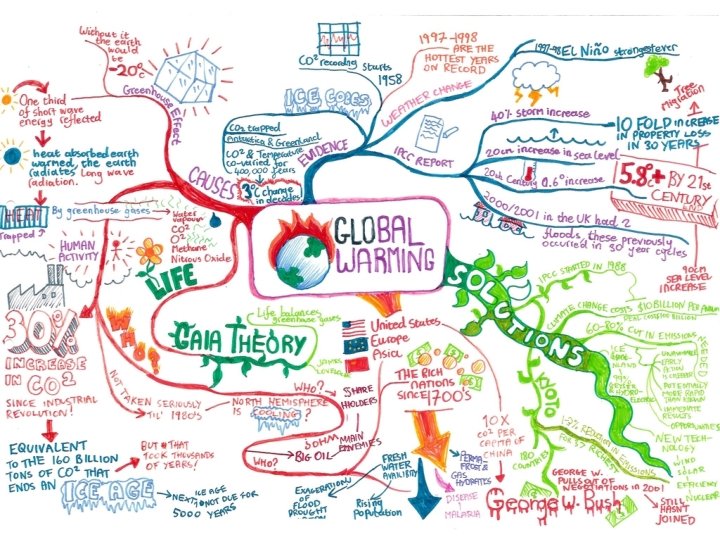 GLOBAL
WARMING
Without it
the earth
would
be
-20°C
Greenhouse Effect
One third
of short wave
energy reflected
heat absorbed earth
warmed, the earth
radiates Long wave
radiation.
HEAT
Trapped
By greenhouse gases
Water
vapour
CO2
O3
Methane
Nitrous Oxide
CAUSES
HUMAN
ACTIVITY
30%
INCREASE
IN CO2
SINCE INDUSTRIAL
REVOLUTION!
EQUIVALENT
TO THE 160 BILLION
TONS OF CO2 THAT
ENDS AN
ICE AGE
BUT THAT
TOOK THOUSANDS
OF YEARS!
ICE AGE
NEXT NOT DUE FOR
5000 YEARS
LIFE
GAIA THEORY
Life balances
greenhouse gases
JAMES
WHO?
NOT TAKEN SERIOUSLY
TIL' 1980s
NORTH HEMISPHERE
IS COOLING?
WHO?
SHARE
HOLDERS
MAIN
ENEMIES
BIG OIL
WHO?
CO2 recording starts
1958
ICE CORES
CO2 trapped
Antarctica & Greenland
CO2 & Temperature
co-varied for
400,000 years
3°C change
in decades
EVIDENCE
WEATHER CHANGE
1997-1998
ARE THE
HOTTEST YEARS
ON RECORD
1997-98 EL Niño strongest ever
IPCC REPORT
40% storm increase
Tree
Migration
10 FOLD INCREASE
IN PROPERTY LOSS
IN 30 YEARS
20cm increase in sea level
20th Century 0.6° increase
5.8°C+ BY 21st
CENTURY
2000/2001 in the UK had 2
floods, these previously
occurred in 50 year cycles
90cm
SEA LEVEL
INCREASE
SOLUTIONS
IPCC STARTED IN 1988
CLIMATE CHANGE COSTS $10 BILLION PER ANNUM
60-80% CUT IN EMISSIONS
EARLY
ACTION
POTENTIALLY
MORE RAPID
THAN KNOWN
IMMEDIATE
RESULTS
NEW TECH-
NOLOGY
WIND
SOLAR
EFFICIENCY
NUCLEAR
KYOTO
180
COUNTRIES
REDUCTION IN EMISSIONS
GEORGE W.
PULLS OUT OF
NEGOTIATIONS IN 2001
George W. Bush
STILL
HASN'T
JOINED
United States
Europe
Asia
THE RICH
NATIONS
SINCE 1700'S
10X
CO2 PER
CAPITA OF
CHINA
FRESH
WATER
PERMA-
FROST &
GAS
HYDRATES
DISEASE
MALARIA
Rising
population
OF
FLOOD
DROUGHT